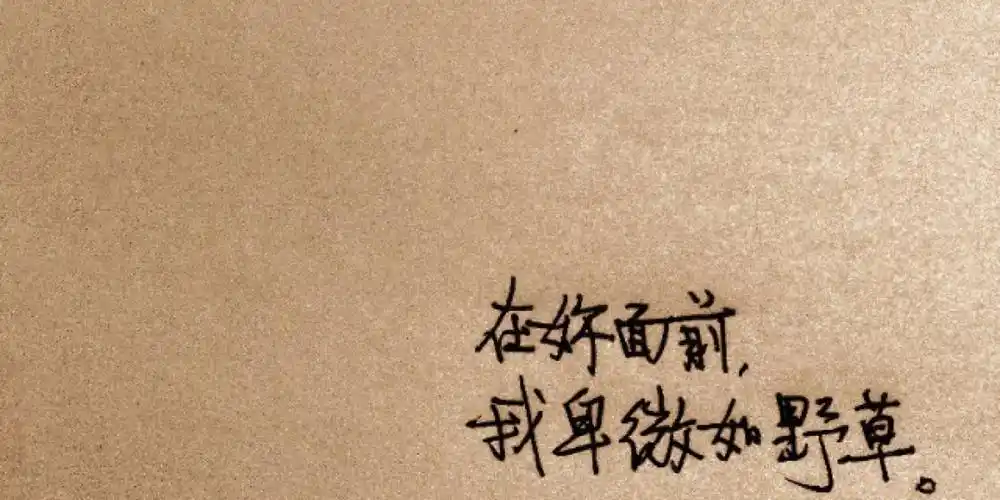 在妳面前,
我卑微如野草。